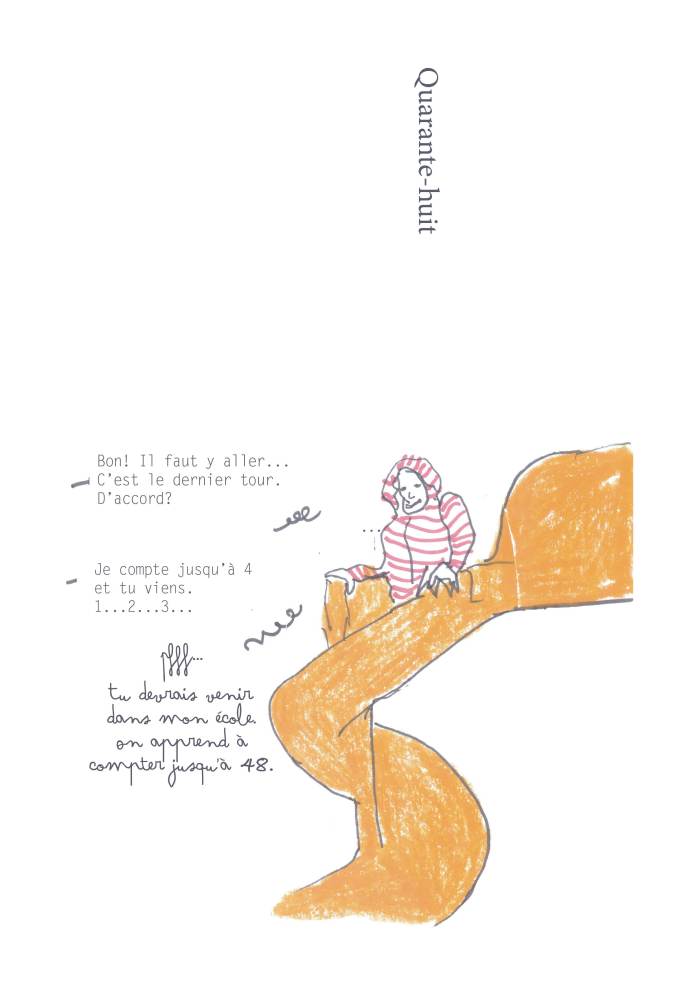 Quarante-huit
Bon! Il faut y aller...
C'est le dernier tour.
D'accord?
...
Je compte jusqu'à 4
et tu viens.
1...2...3...
pfff...
tu devrais venir
dans mon école.
on apprend à
compter jusqu'à 48.